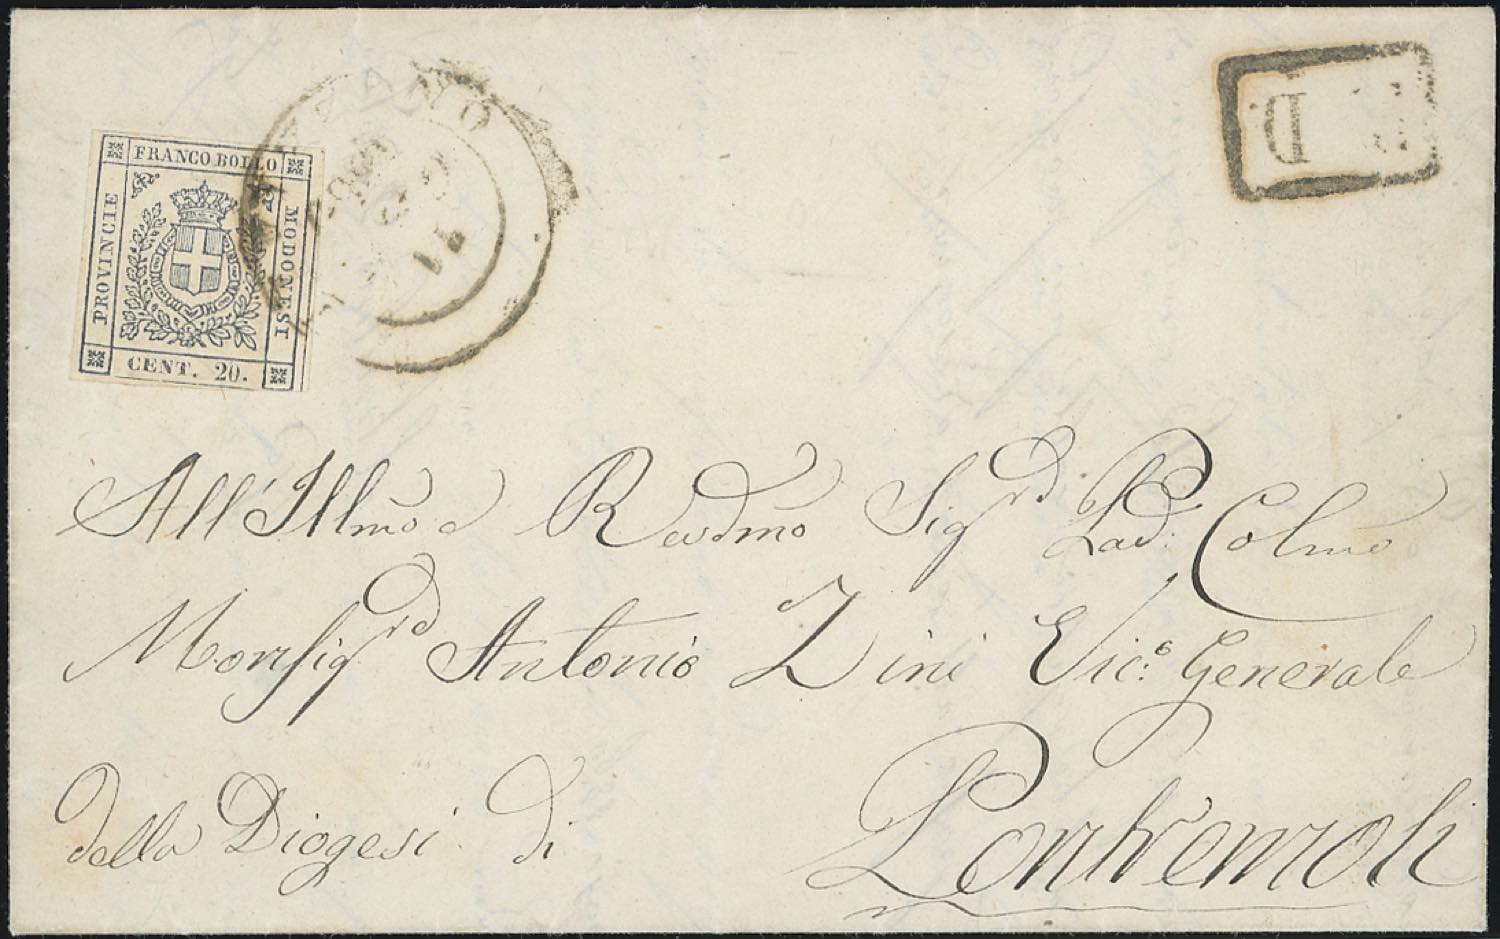 FRANCO BOLLO
PROVINCIE
MODONESI
CENT. 20.
D
All' Illmo e Revdmo Sigrd Pad. Colmo
Monsigrd Antonio Zini Vico. Generale
della Diogesi di
Pontremoli